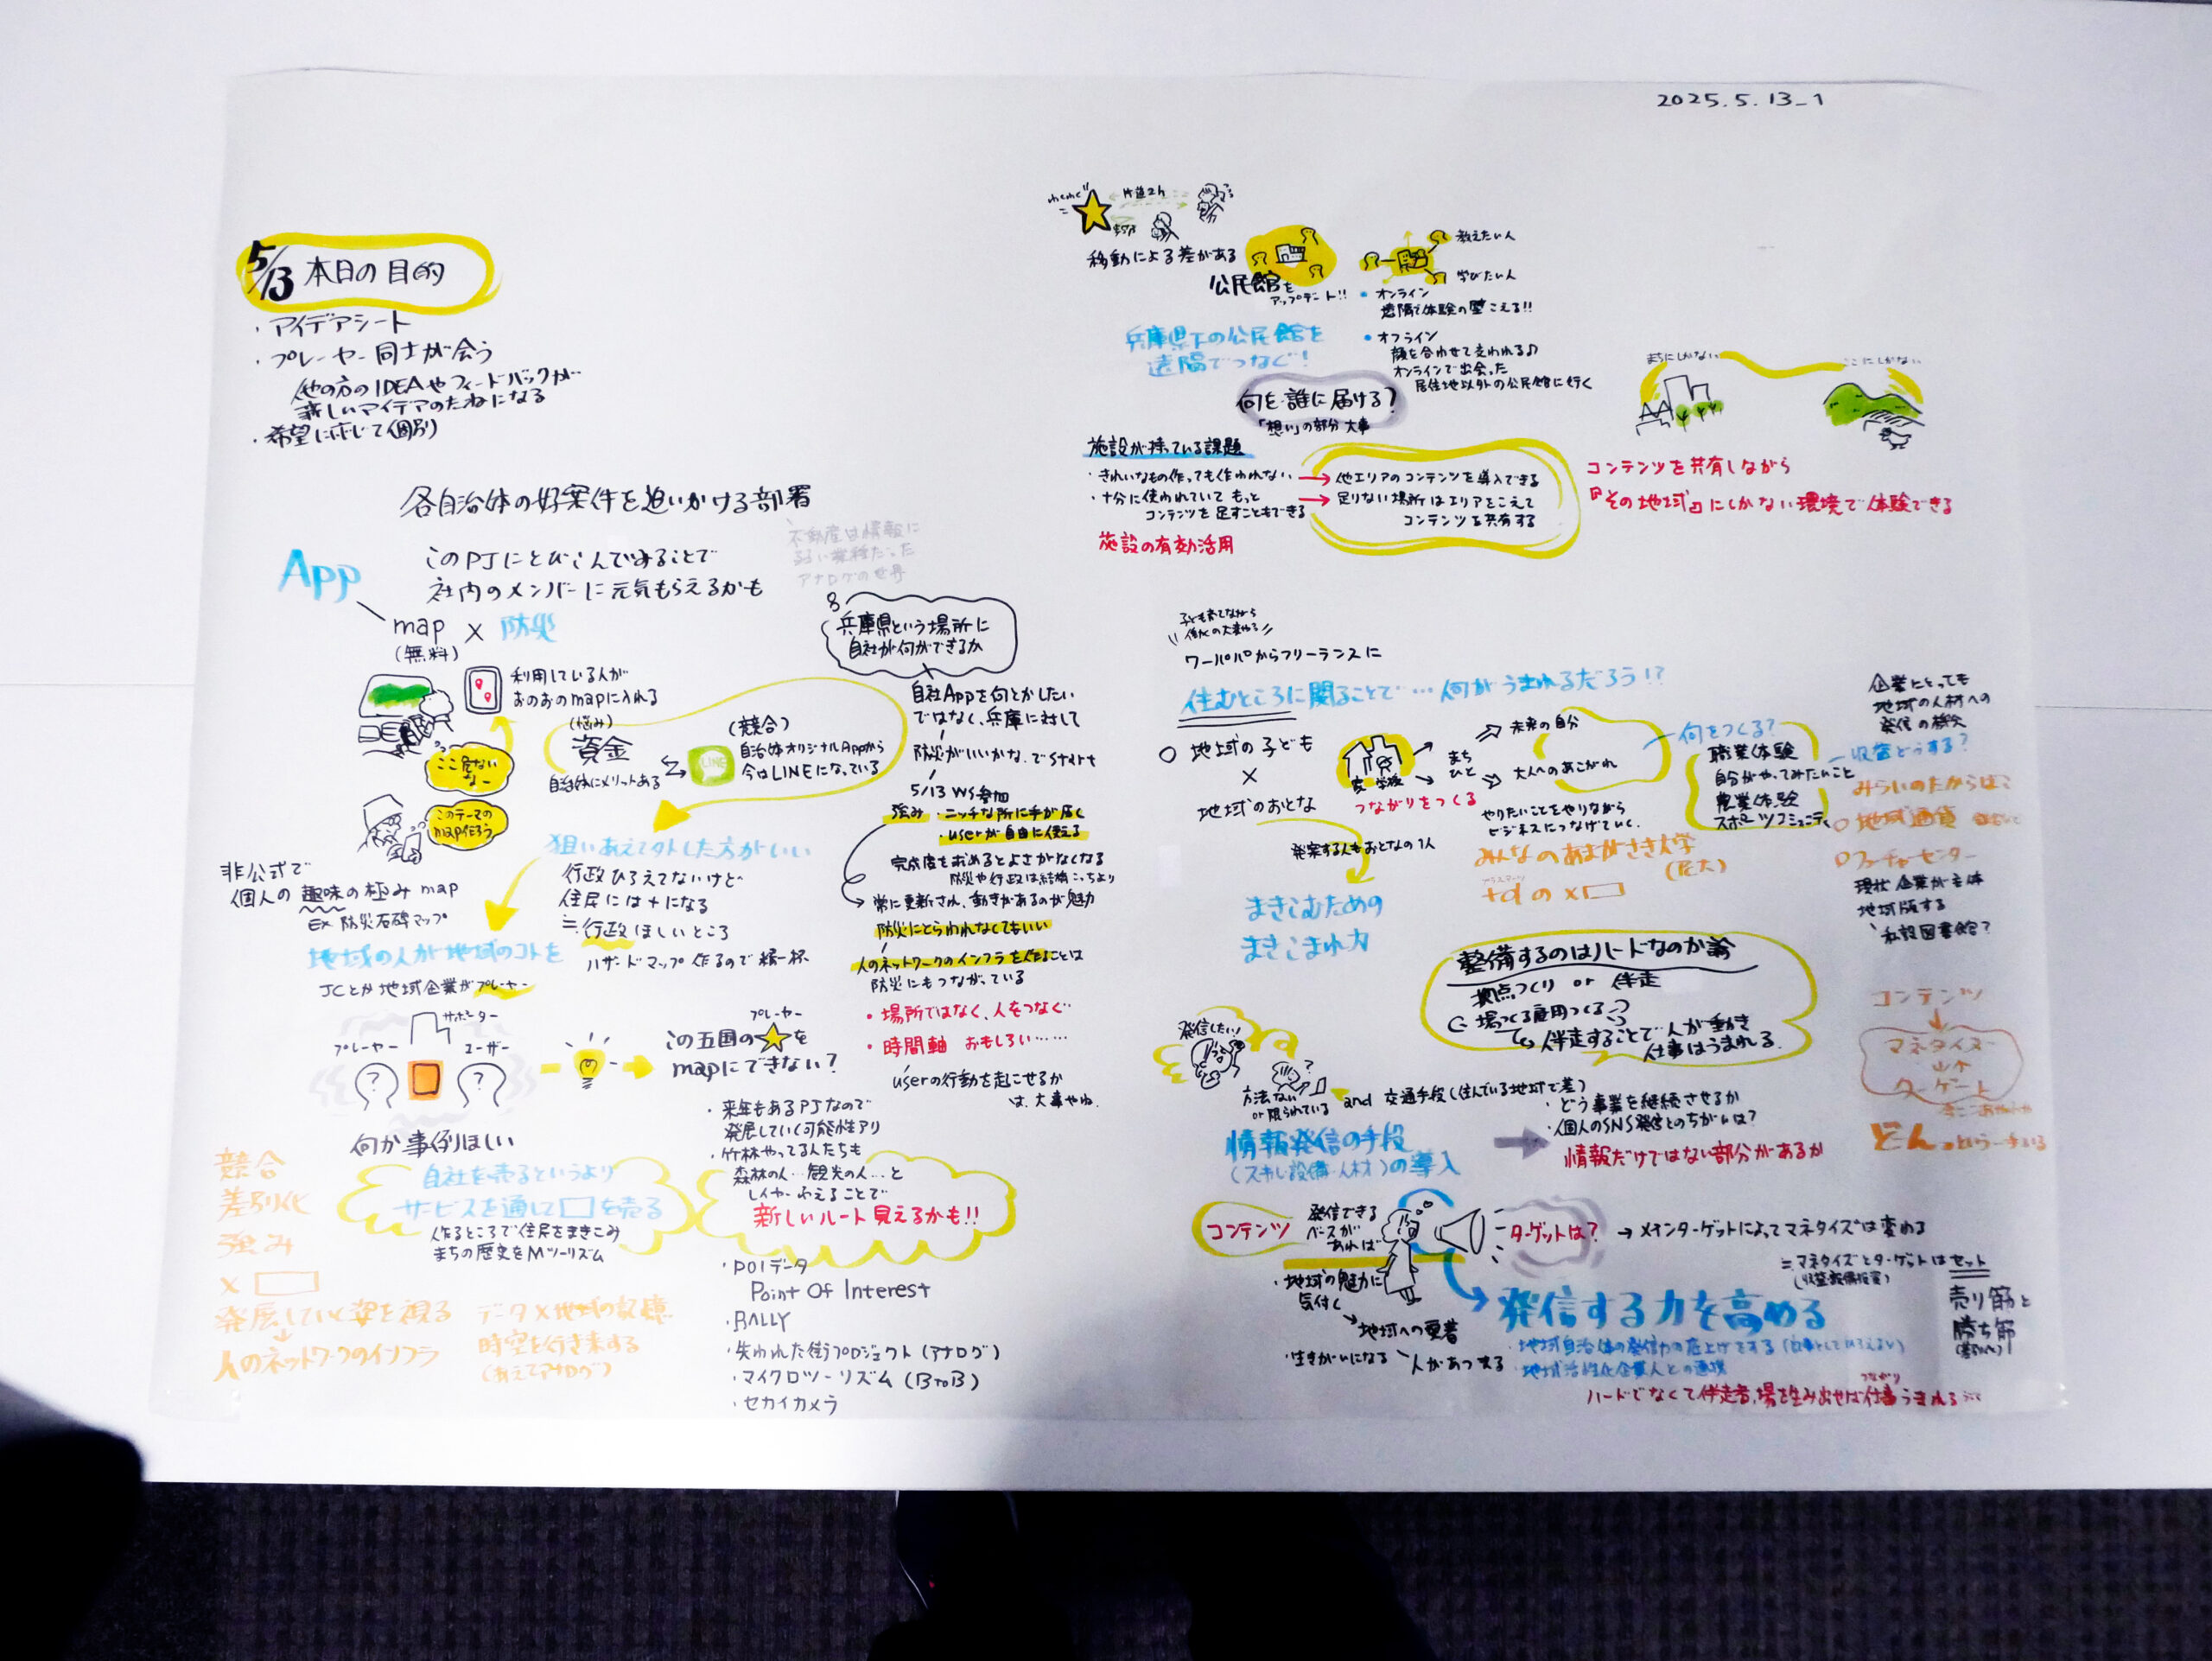 2025.5.13_1
5/13 本日の目的
・アイデアシート
・プレーヤー同士が会う
他の方のIDEAやフィードバックが
新しいアイデアのたねになる
・希望に応じて個別
各自治体の好案件を追いかける部署
不動産は情報に
アナログの世界
App
このPJにとびこんでみることで
社内のメンバーに元気もらえるかも
map × 防災
(無料)
利用している人が
おのおのmapに入れる
ここ危ない
なー
このテーマの
map作ろう
(悩み)
資金
自治体にメリットある
(競合)
LINE
自治体オリジナルAppから
今はLINEになっている
非公式で
個人の趣味の極みmap
EX 防災石碑マップ
狙いあえて外した方がいい
行政ひろえてないけど
住民には+になる
≒行政ほしいところ
ハザードマップ作るので精一杯
地域の人が地域のコトを
JCとか地域企業がプレーヤー
サポーター
プレーヤー
ユーザー
?
?
何か事例ほしい
プレーヤー
この五国の★を
mapにできない?
・来年もあるPJなので
発展していく可能性アリ
・竹林やってる人たちも
森林の人…観光の人…と
レイヤーふえることで
新しいルート見えるかも!!
兵庫県という場所に
自社が何ができるか
自社Appを何とかしたい
ではなく、兵庫に対して
防災がいいかな、でstart
5/13 WS参加
強み・ニッチな所に手が届く
・userが自由に使える
完成度を求めるとよさがなくなる
防災や行政は結構こっちより
常に更新され、動きがあるのが魅力
防災にとらわれなくてもいい
人のネットワークのインフラを作ることは
防災にもつながっている
・場所ではなく、人をつなぐ
・時間軸 おもしろい……
userの行動を起こせるか
は、大事やね
競合
差別化
強み
×□
発展していく姿を視る
人のネットワークのインフラ
自社を売るというより
サービスを通して□を売る
作るところで住民をまきこみ
まちの歴史をMツーリズム
データ×地域の記憶
時空を行き来する
(あえてアナログ)
・POIデータ
Point Of Interest
・RALLY
・失われた街プロジェクト(アナログ)
・マイクロツーリズム(BtoB)
・セカイカメラ
片道2h
移動による差がある
公民館を
アップデート!!
教えたい人
学びたい人
・オンライン
遠隔で体験の壁こえる!!
・オフライン
顔を合わせて交われる♪
オンラインで出会った
居住地以外の公民館に行く
兵庫県下の公民館を
遠隔でつなぐ!
何を誰に届ける?
「想い」の部分大事
施設が持っている課題
・きれいなもの作っても使われない → 他エリアのコンテンツを導入できる
・十分に使われていて もっと
コンテンツを足すこともできる
→ 足りない場所はエリアをこえて
コンテンツを共有する
施設の有効活用
まちにしかない
ここにしかない
コンテンツを共有しながら
『その地域』にしかない環境で体験できる
子ども育てながら
働くの大変やる
ワーパパからフリーランスに
住むところに関ることで…何がうまれるだろう!?
○地域の子ども
×
地域のおとな
家 学校
つながりをつくる
まち
ひと
未来の自分
大人へのあこがれ
やりたいことをやりながら
ビジネスにつなげていく
発案する人もおとなの1人
まきこむための
まきこまれ力
みんなのあまがさき大学
(尼大)
+αの×□
何をつくる?
職業体験
自分がやってみたいこと
農業体験
スポーツコミュニティ
企業にとっても
地域の人材への
発信の機会
収益どうする?
みらいのたからばこ
○地域通貨
○フューチャーセンター
現状企業が主体
地域版する
私設図書館?
整備するのはハードなのか論
拠点づくり or 伴走
場つくる雇用つくる?
伴走することで人が動き
仕事はうまれる
コンテンツ
マネタイズ
ターゲット
どーん
発信したい!
方法ない
or 限られている
and 交通手段(住んでいる地域で差)
情報発信の手段
(スキル・設備・人材)の導入
・どう事業を継続させるか
・個人のSNS発信とのちがいは?
情報だけではない部分があるか
コンテンツ
発信できる
ベースが
あれば
ターゲットは?
→ メインターゲットによってマネタイズは変わる
=マネタイズとターゲットはセット
・地域の魅力に
気付く
地域への愛着
・生きがいになる
人があつまる
発信する力を高める
・地域自治体の発信力の底上げをする
・地域活性化企業人との連携
ハードでなくて伴走者、場を生み出せば仕事うまれる
つながり
売り筋と
勝ち筋